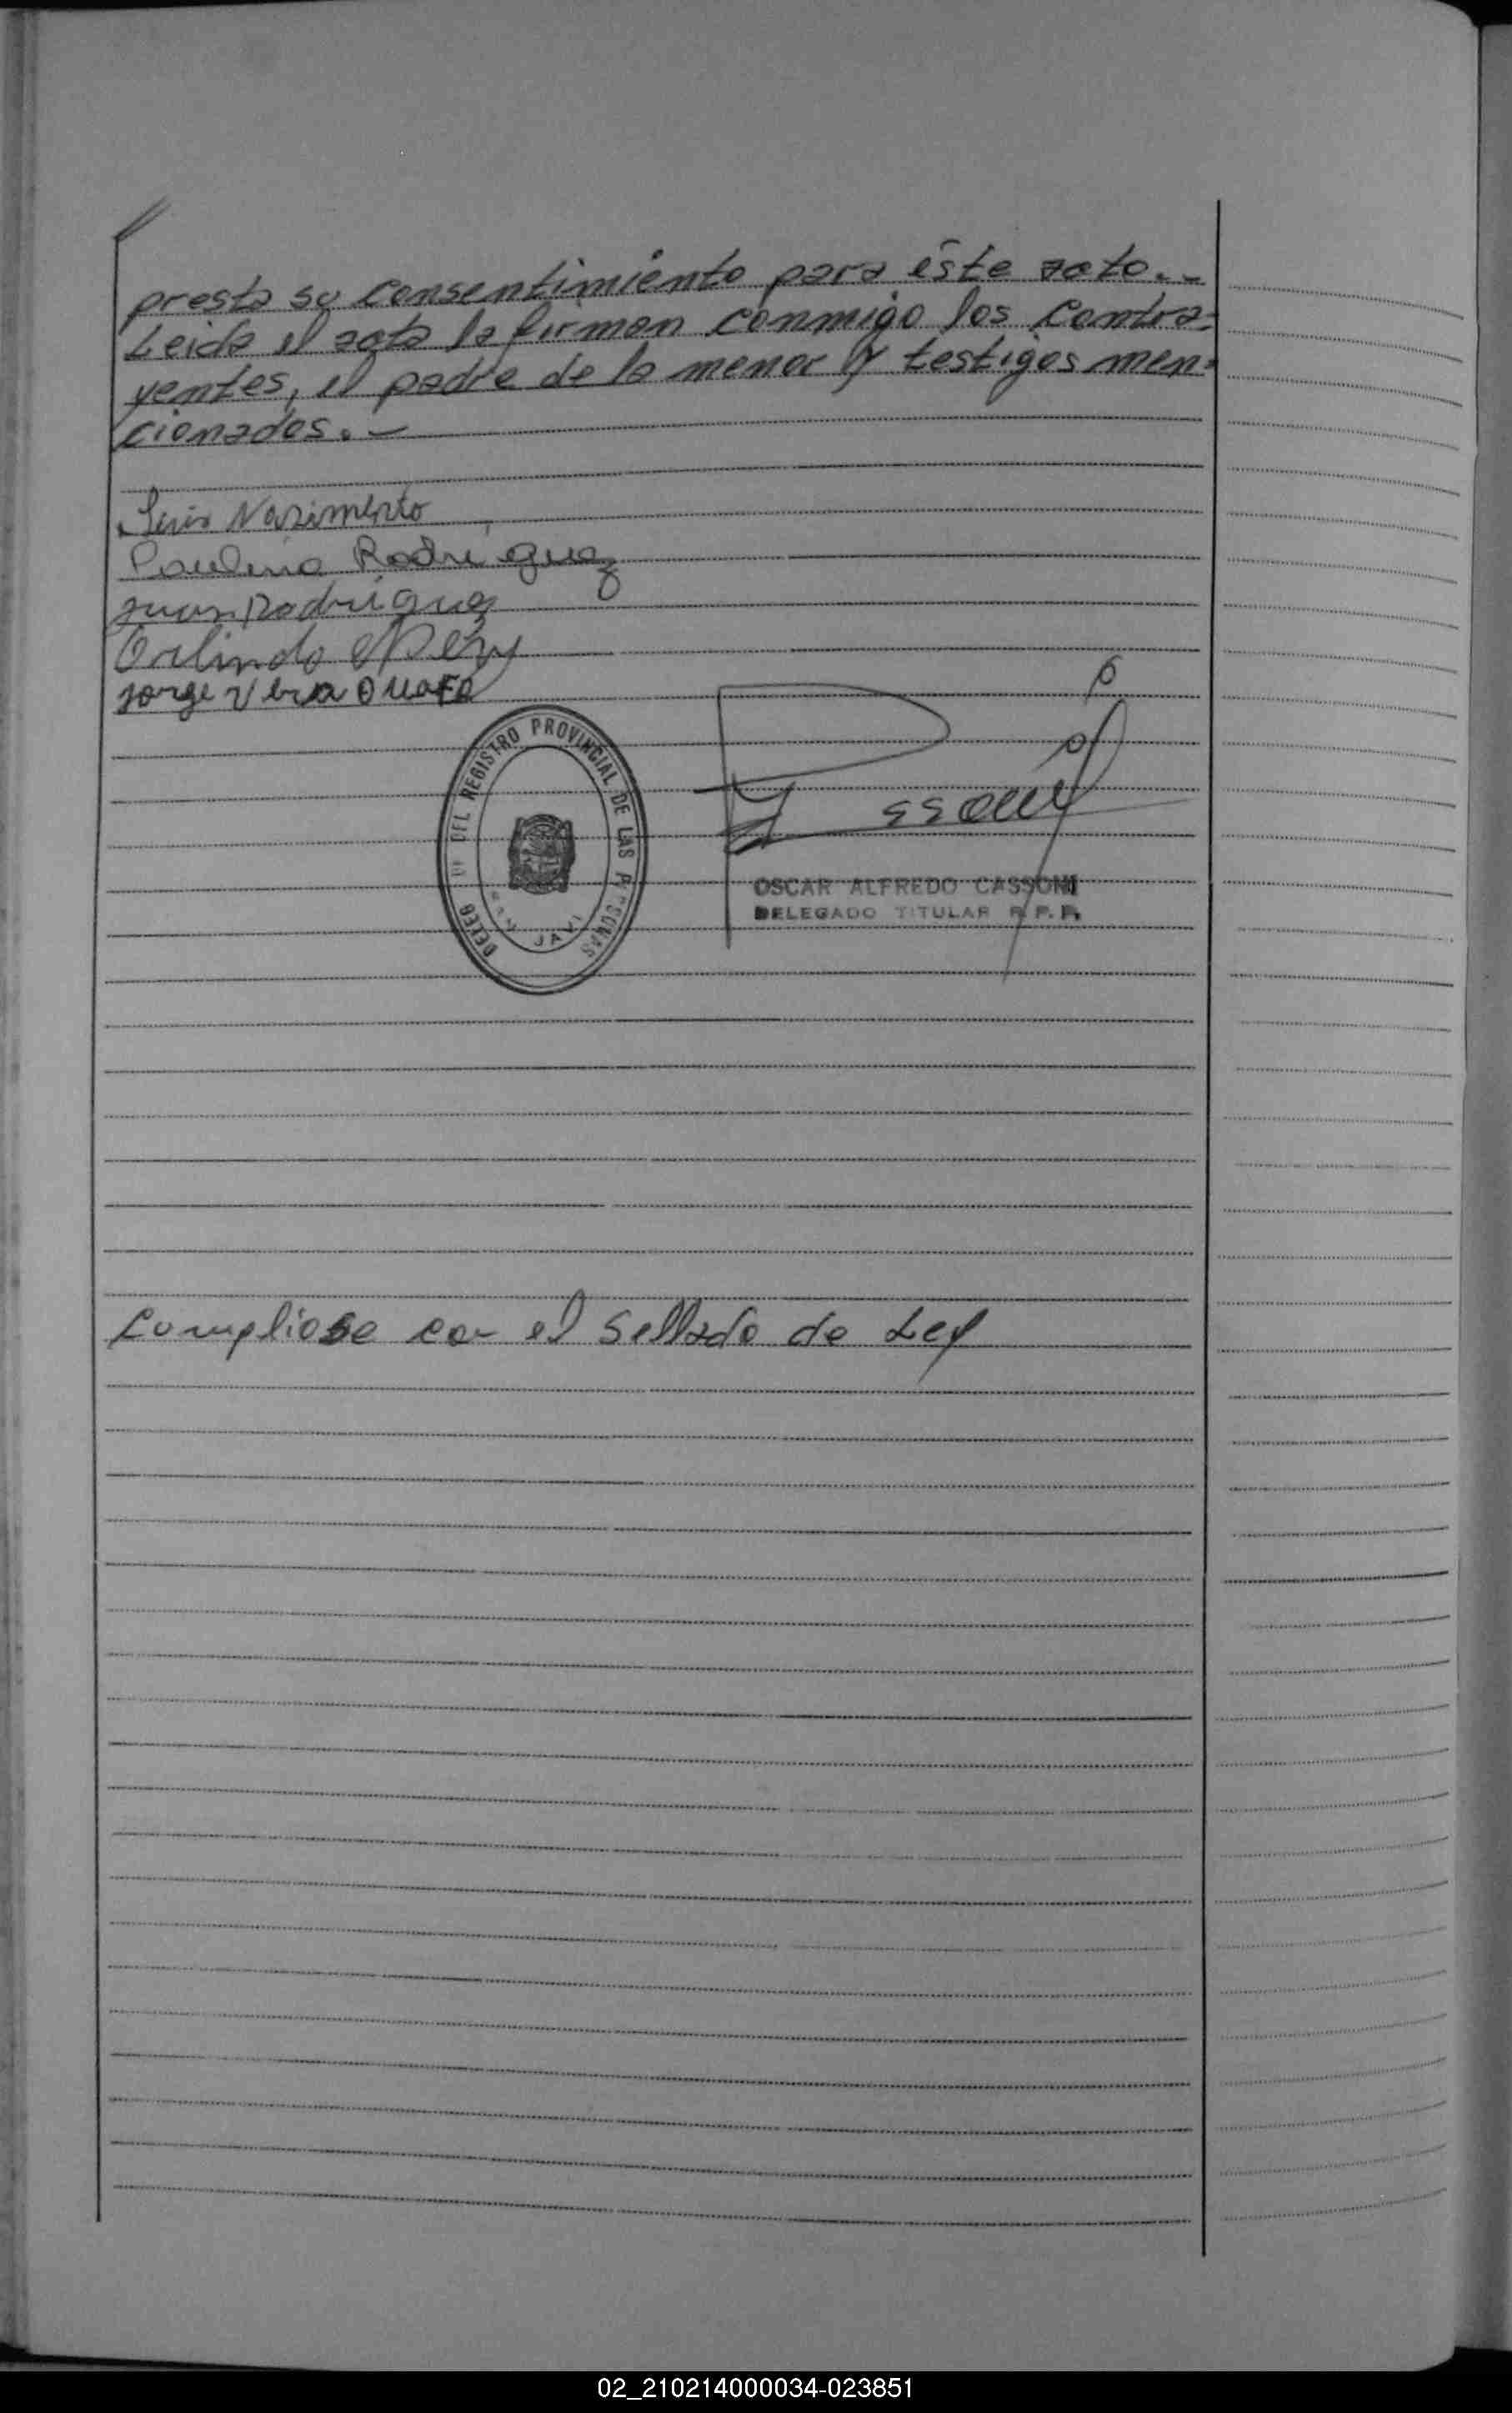 presta su consentimiento para éste acto.-
Leida el acta la firman conmigo los contra-
yentes, el padre de la menor y testigos men-
cionados.-
Luis Nasimento
Paulina Rodriguez
Juan Rodriguez
Orlindo
Jorge Vera
DEL REGISTRO PROVINCIAL DE LAS PERSONAS
OSCAR ALFREDO CASSONI
DELEGADO TITULAR R.P.P.
Cumpliose con el Sellado de Ley
02_210214000034-023851